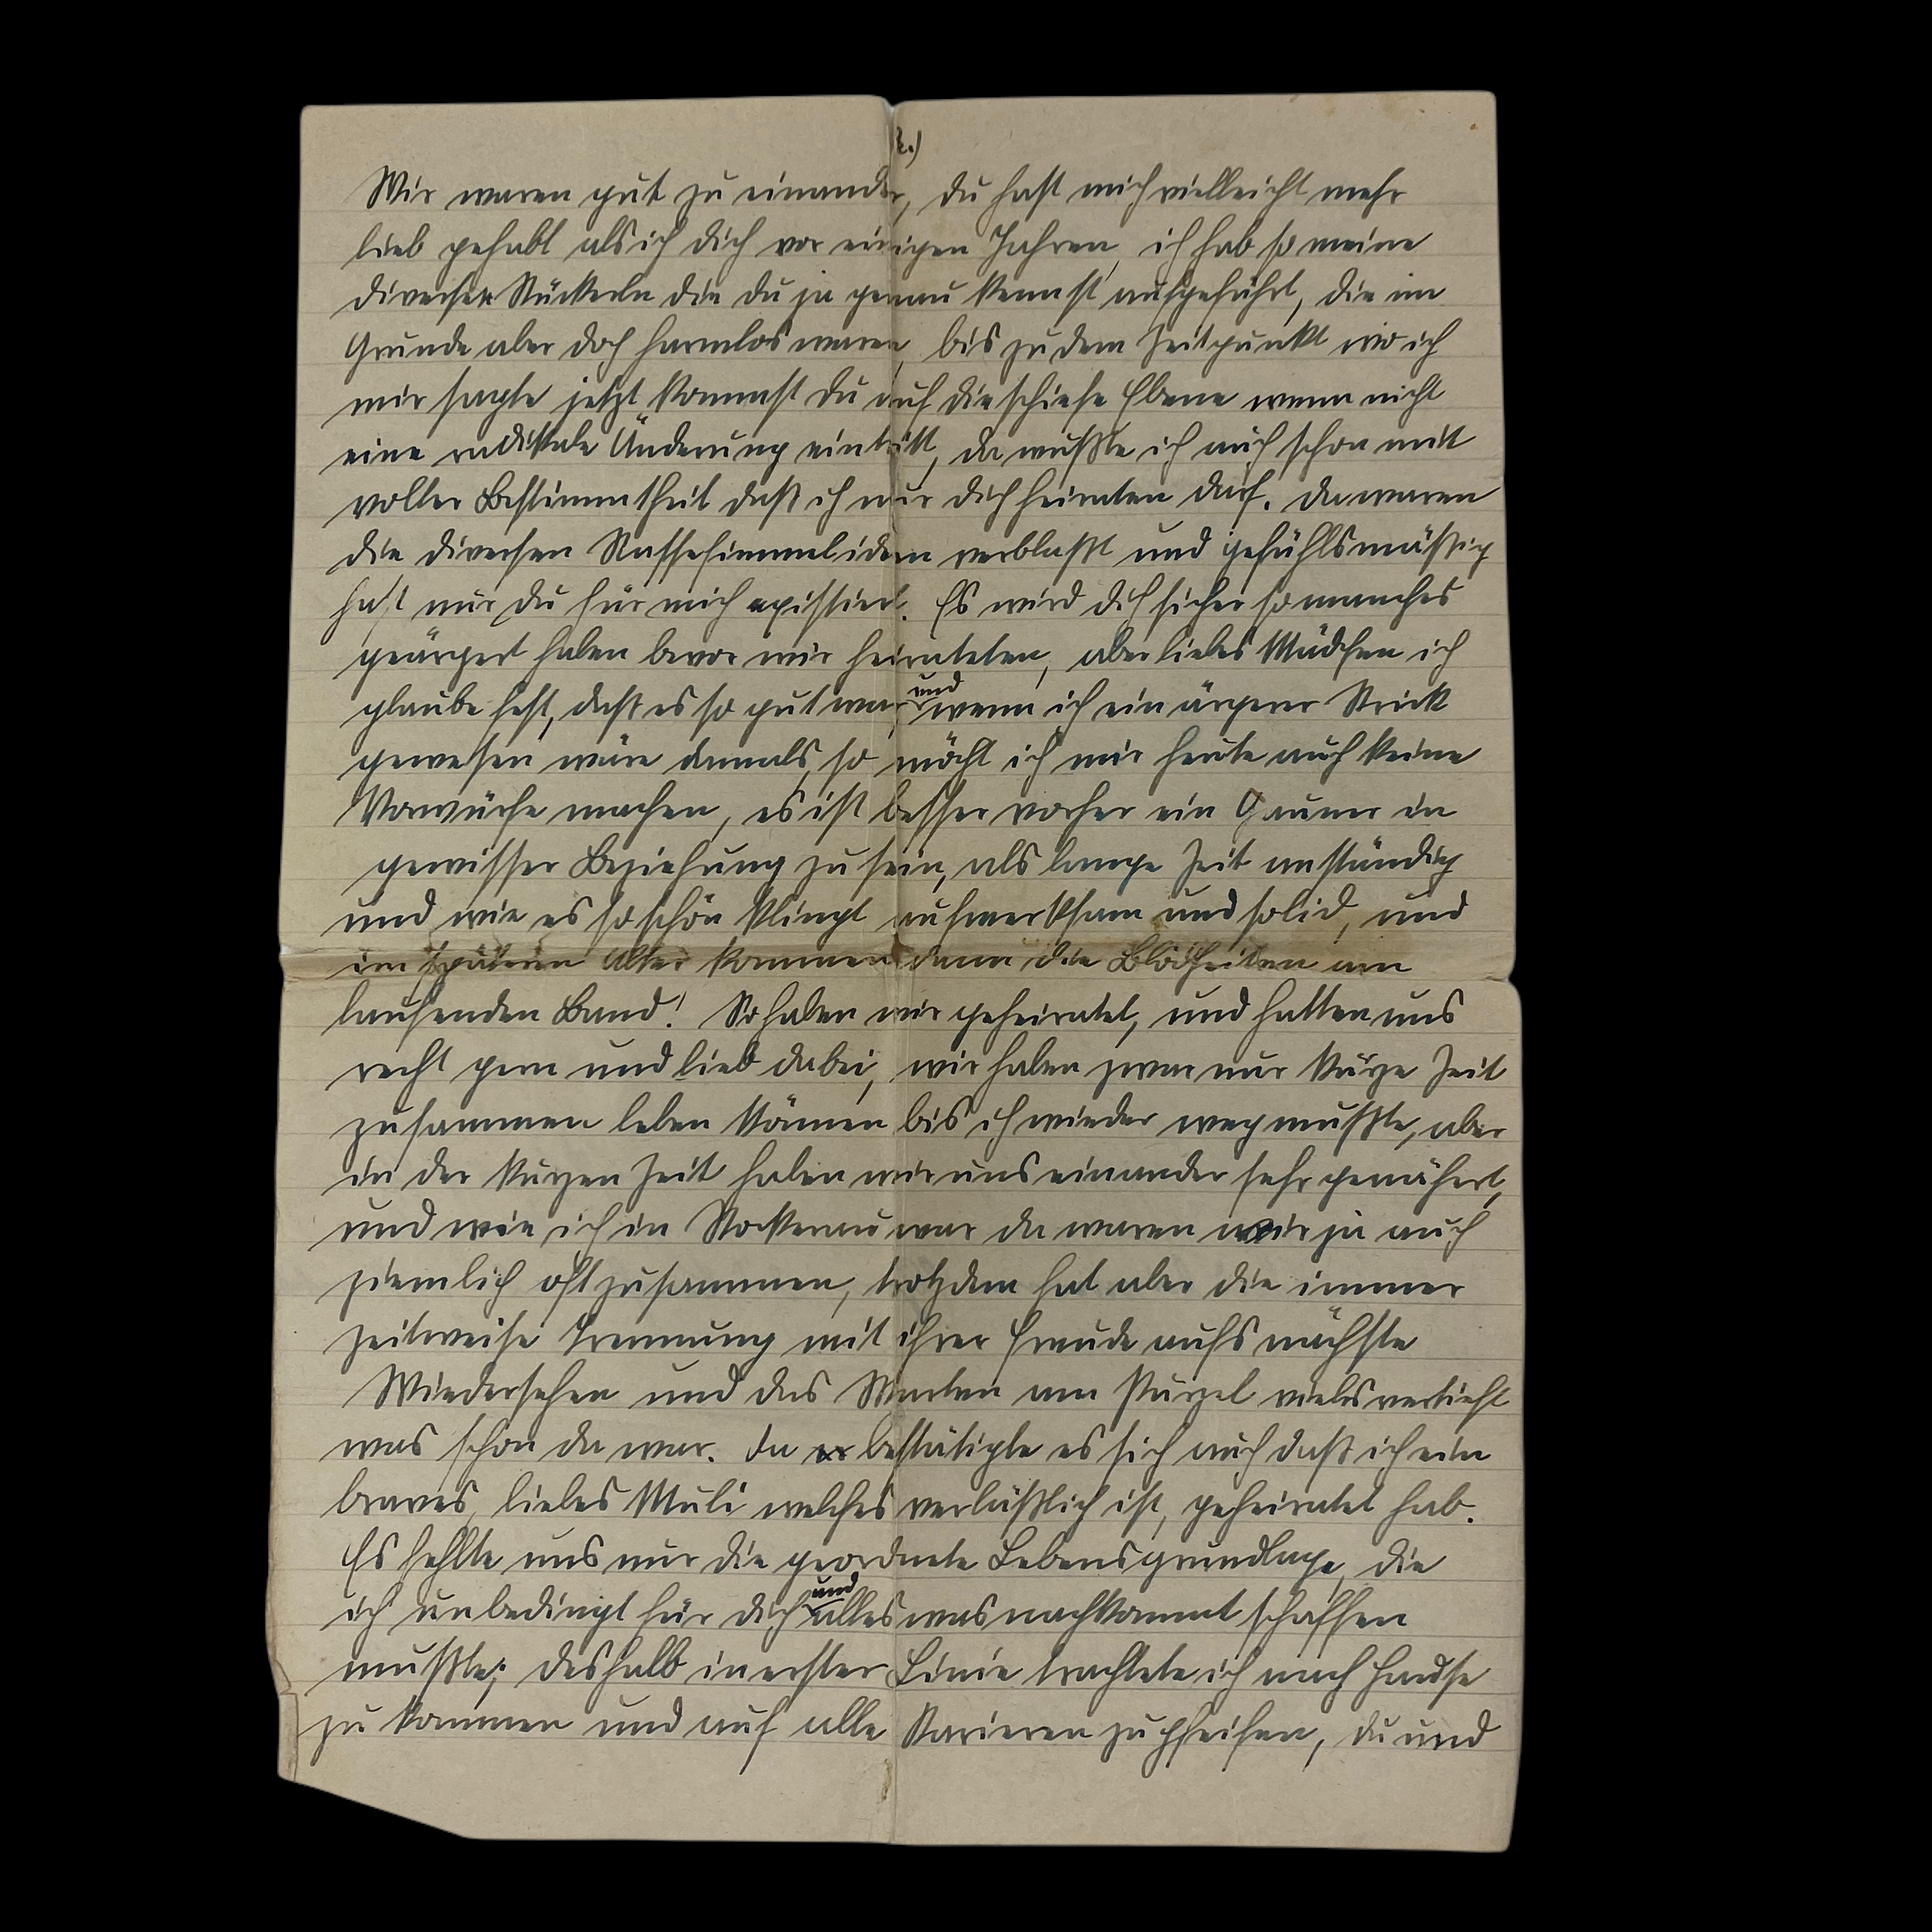 2.)
Wir waren gut zu einander, du hast mich vielleicht mehr
lieb gehabt als ich dich vor einigen Jahren, ich hab so meine
diversen Stückerln die du ja genau kennst aufgeführt, die im
Grunde aber doch harmlos waren, bis zu dem Zeitpunkt wo ich
mir sagte jetzt kommst du auf die schiefe Ebene wenn nicht
eine radikale Änderung eintritt, da wußte ich auch schon mit
voller Bestimmtheit daß ich nur dich heiraten darf. Da waren
die diversen Rassefimmelideen verblaßt und gefühlsmäßig
hast nur du für mich existiert. Es wird dich sicher so manches
geärgert haben bevor wir heirateten, aber liebes Mädchen ich
glaube fest, daß es so gut war, und wenn ich ein ärgerer Strick
gewesen wäre damals, so möcht ich mir heute auch keine
Vorwürfe machen, es ist besser vorher ein Gauner in
gewisser Beziehung zu sein, als lange Zeit anständig
und wie es so schön klingt aufmerksam und solid, und
im späteren Alter kommen dann die Blödheiten am
laufenden Band! So haben wir geheiratet, und hatten uns
recht gern und lieb dabei, wir haben zwar nur kurze Zeit
zusammen leben können bis ich wieder weg mußte, aber
in der kurzen Zeit haben wir uns einander sehr genähert,
und wie ich in Stockerau war da waren wir ja auch
ziemlich oft zusammen, trotzdem hat aber die immer
zeitweise Trennung mit ihrer Freude aufs nächste
Wiedersehen und das Warten am Purzel vieles vertieft
was schon da war. Da bestätigte es sich auch daß ich ein
braves, liebes Muli welches verläßlich ist, geheiratet hab.
Es fehlte uns nur die geordnete Lebensgrundlage, die
ich unbedingt für dich und alles was nachkommt schaffen
mußte; deshalb in erster Linie trachtete ich nach Hause
zu kommen und auf alle Karieren zu pfeifen, du und